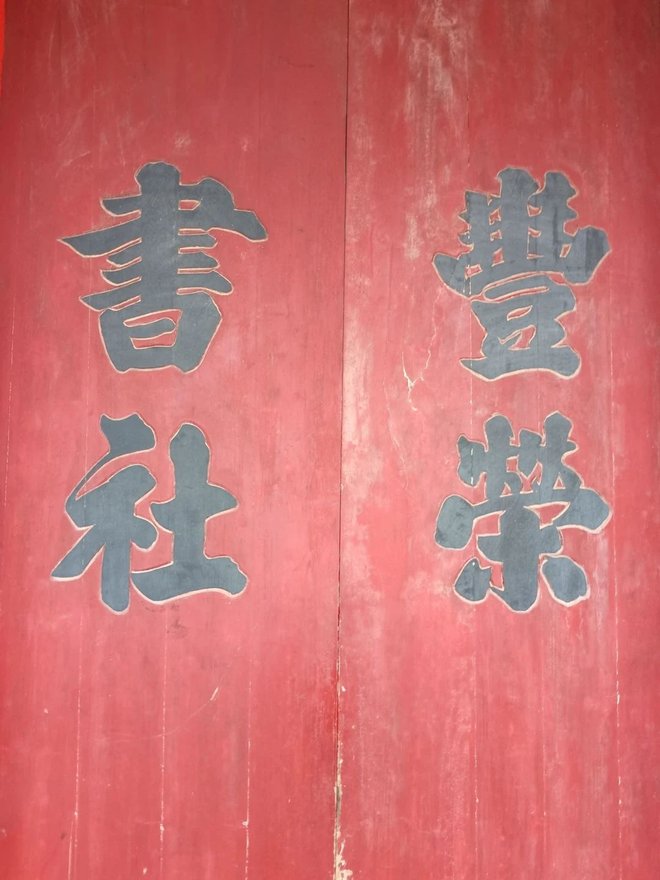 豐榮
書社